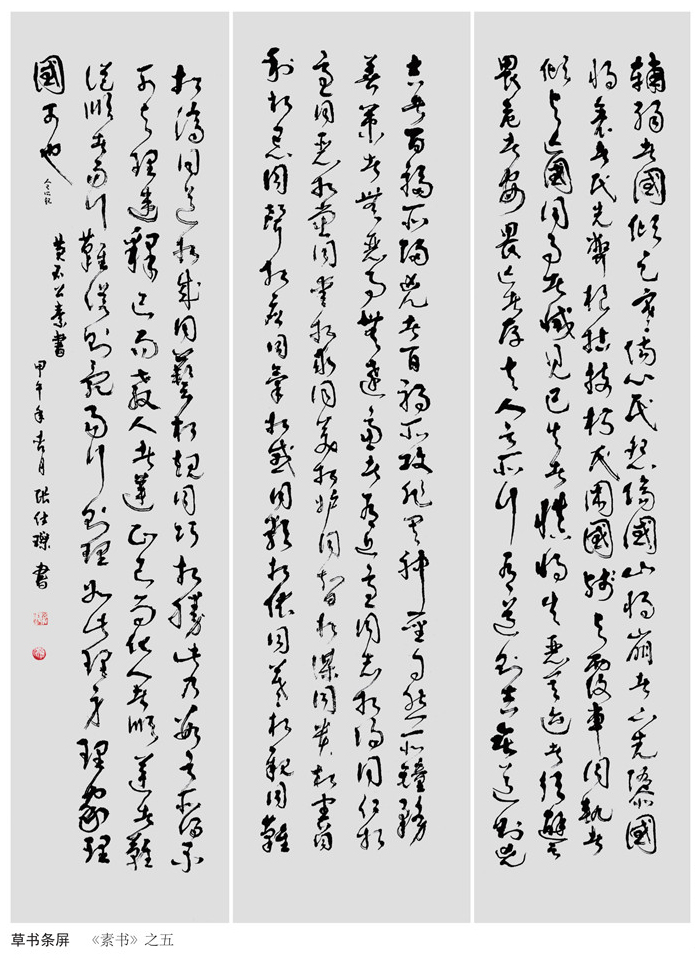 輔弱者國傾足寒傷心民怨傷國山將崩者下先隳國
將衰者民先弊根枯枝朽民困國殘與覆車同軌者
傾與亡國同事者滅見已失者慎將失惡其迹者須避之
畏危者安畏亡者存夫人之所行有道則吉無道則凶
吉者百福所歸凶者百禍所攻非其神聖自然所鍾務
善策者無惡事無遠慮者有近憂同志相得同仁相
憂同惡相黨同愛相求同美相妒同智相謀同貴相害同
利相忌同聲相應同氣相感同類相依同義相親同難
相濟同道相成同藝相規同巧相勝此乃數之所得不
可與理違釋己而教人者逆正己而化人者順逆者難
從順者易行難從則亂易行則理如此理身理家理
國可也
黃石公素書
甲午年吉月 張仕 書
草书条屏 《素书》之五